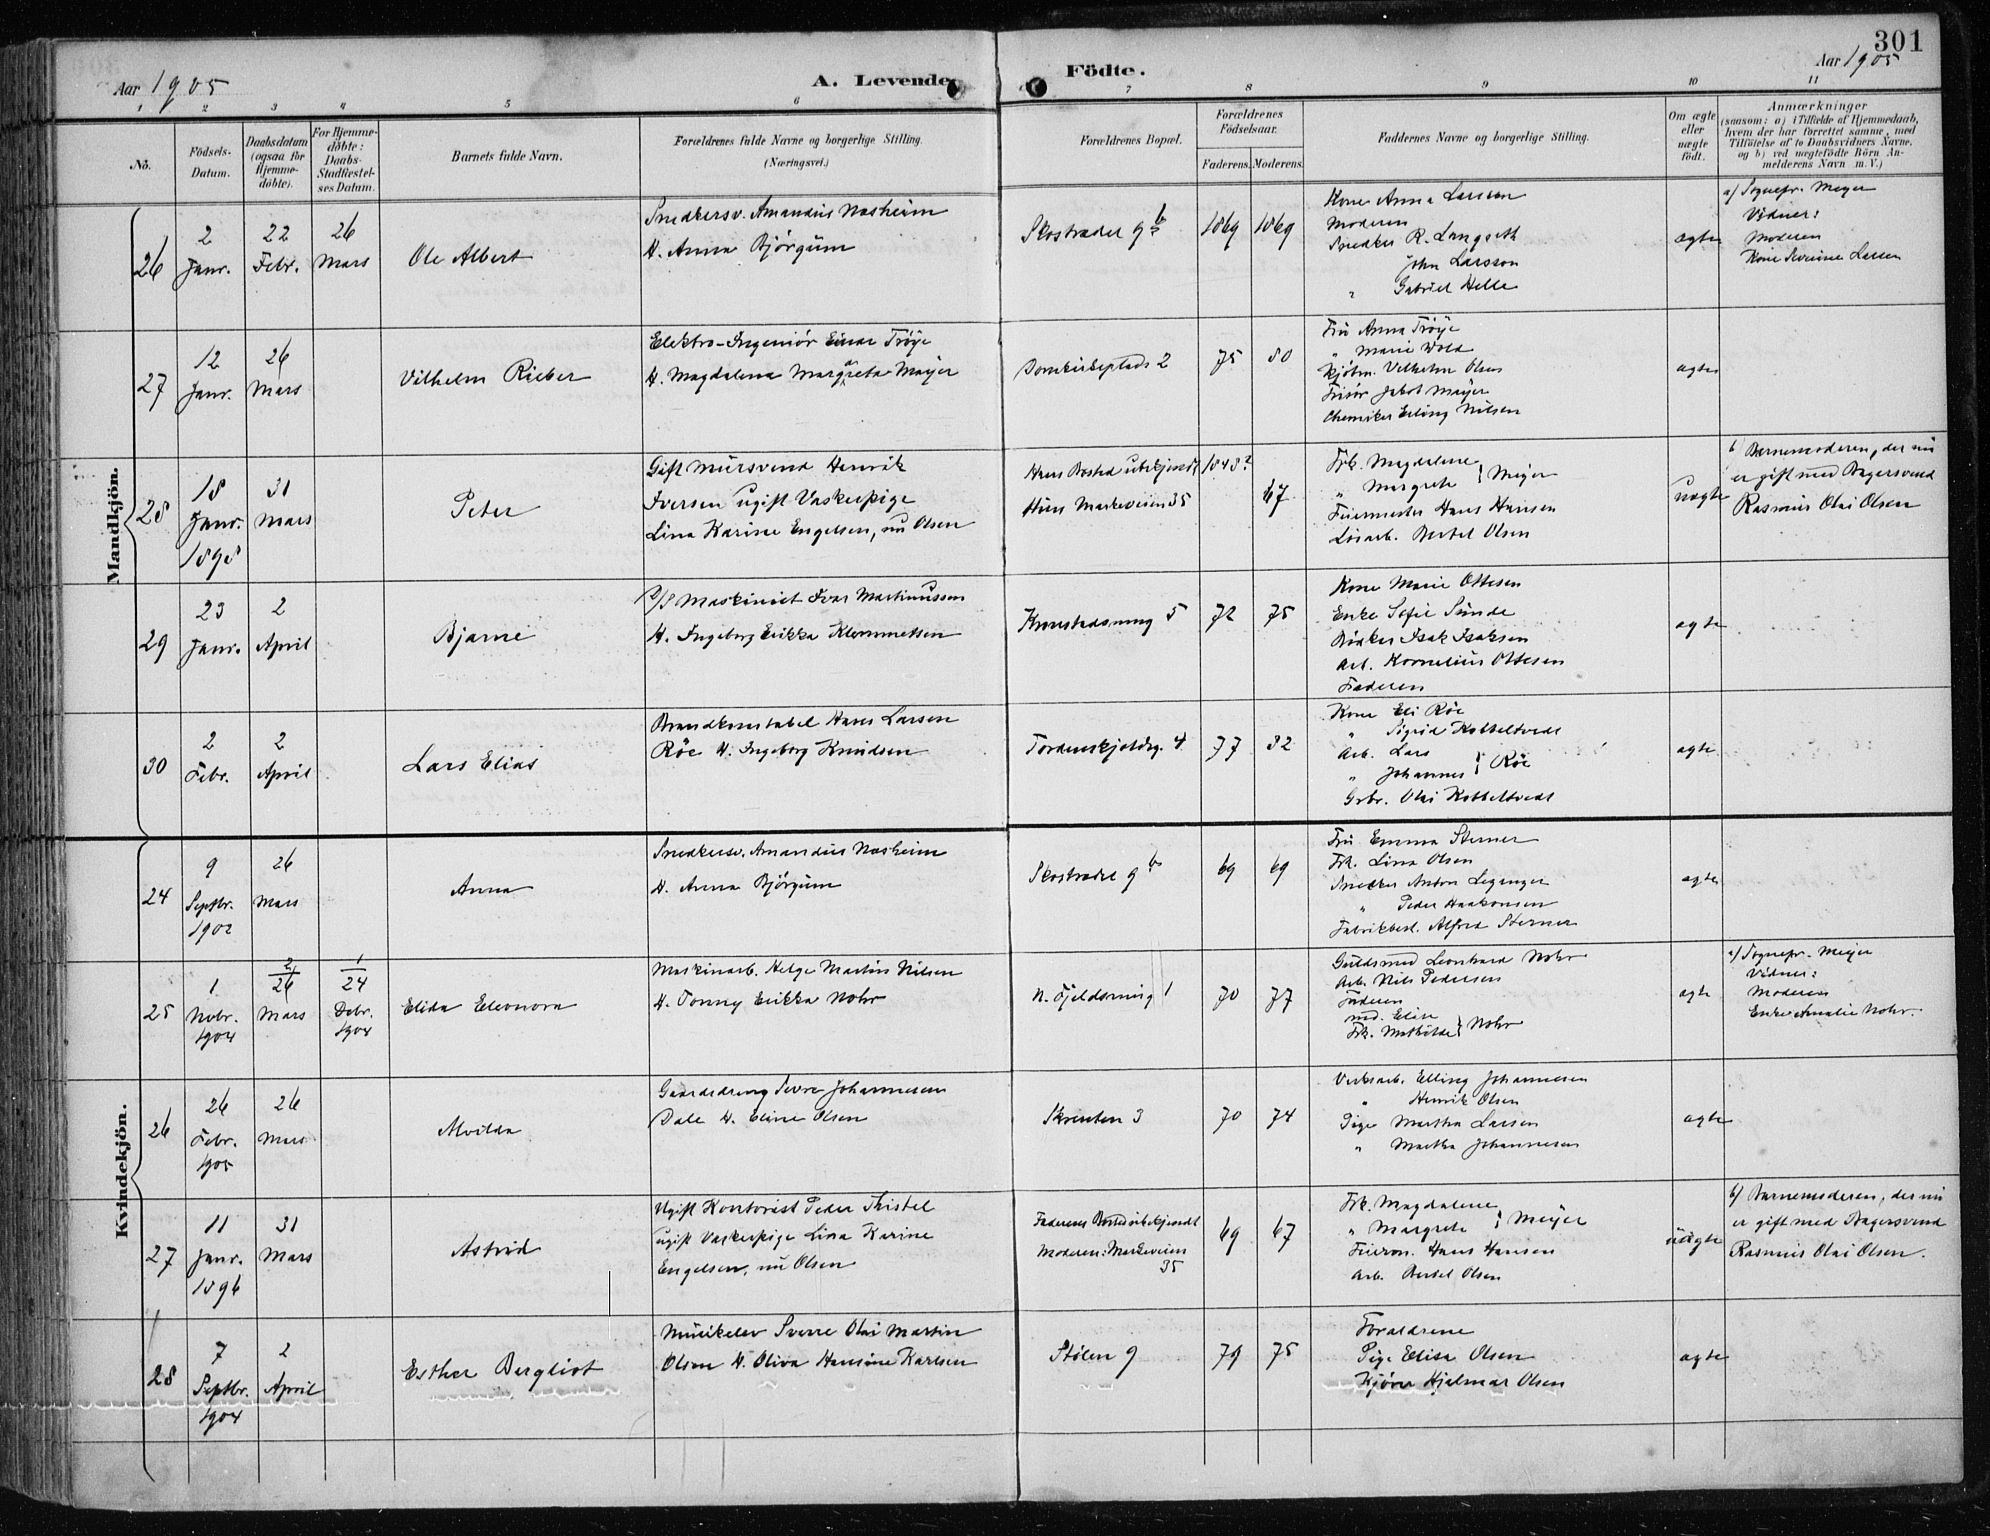 301
Aar 1905
A. Levende Födte.
Aar 1905
1 2 3 4 5 6 7 8 9 10 11
No.
Födsels-Datum.
Daabsdatum (ogsaa for Hjemme-döbte).
For Hjemme-döbte: Daabs-Stadfæstel-ses Datum.
Barnets fulde Navn.
Forældrenes fulde Navne og borgerlige Stilling.
(Næringsvei.)
Forældrenes Bopæl.
Forældrenes Födselsaar.
Faderens. Moderens.
Faddernes Navne og borgerlige Stilling.
Om ægte eller uægte födt.
Anmærkninger
(saasom: a) i Tilfælde af Hjemmedaab,
hvem der har forrettet samme, med
Tilföielse af to Daabsvidners Navne,
og b) ved uægtefödte Börn An-
melderens Navn m. V.)
Mandkjön.
26
2 Janr.
22 Febr.
26 Mars
Ole Albert
Snedkersv. Amandus Nasheim
H. Anna Bjørgum
Skostrædet 9 b
1869 1869
Kone Anna Larsen
Moderen
Snedker R. Langseth
John Larsson
" Gabriel Helle
ægte
a) Sognepr. Meyer
Vidner:
Moderen
Kone Severine Larsen
27
12 Janr.
26 Mars
Vilhelm Rieber
Elektro-Ingeniør Einar Trøye
H. Magdalena Margreta Meyer
Domkirkeplads 2
75 80
Fru Anna Trøye
" Marie Wold
Kjøbm. Vilhelm Olsen
Frisør Jakob Meyer
Chemiker Erling Nilsen
ægte
28
18 Janr. 1898
31 Mars
Peter
Gift Mursvend Henrik
Iversen ugift Vaskerpige
Lina Karine Engelsen, nu Olsen
Hans Bosted ubekjendt
Hun: Markeveien 35
1848? 67
Frk. Magdalene
" Margrete } Meyer
Feiermester Hans Hansen
Løsarb. Bertel Olsen
uægte
b) Barnemoderen, der nu
er gift med Bagersvend
Rasmus Olai Olsen
29
23 Janr.
2 April
Bjarne
D/S Maskinist Ivar Martinussen
H. Ingeborg Erikka Klemmetsen
Kronstadsmug 5
72 75
Kone Marie Ottesen
Enke Sofie Sunde
Bødker Isak Isaksen
Arb. Kornelius Ottesen
Faderen
ægte
30
2 Febr.
2 April
Lars Elias
Brandkonstabel Hans Larsen
Røe H. Ingeborg Knudsen
Tordenskjoldsg. 4
77 82
Kone Eli Røe
" Sigrid Kobbeltvedt
Arb. Lars
" Johannes } Røe
Grbr. Olai Kobbeltvedt
ægte
Kvindekjön.
24
9 Septbr. 1902
26 Mars
Anna
Snedkersv. Amandus Nasheim
H. Anna Bjørgum
Skostrædet 9 b
69 69
Fru Emma Sterner
Frk. Lina Olsen
Snedker Anton Leganger
" Peder Haakonsen
Fabrikbest. Alfred Sterner
ægte
25
1 Nobr. 1904
2/26 Mars
1/24 Debr. 1904
Elida Eleonora
Maskinarb. Helge Martin Nilsen
H. Tonny Erikka Nohr
N. Fjeldsmug 1
70 77
Guldsmed Leonhard Nohr
Arb. Nils Pedersen
Faderen
Md. Elise
Frk. Mathilde } Nohr
ægte
a) Sognepr. Meyer
Vidner:
Moderen
Enke Amalie Nohr.
26
26 Febr. 1905
26 Mars
Alvilda
Gaardsdreng Sivre Johannesen
Dale H. Eline Olsen
Skrenten 3
70 74
Verksarb. Elling Johannesen
" Henrik Olsen
Pige Martha Larsen
" Martha Johannesen
ægte
27
11 Janr. 1896
31 Mars
Astrid
Ugift Kontorist Peder Thistel
ugift Vaskerpige Lina Karine
Engelsen, nu Olsen
Faderens Bosted ubekjendt
Moderen: Markeveien
35
69 67
Frk. Magdalene
" Margrete } Meyer
Feierm. Hans Hansen
Arb. Bertel Olsen
uægte
b) Barnemoderen, der nu
er gift med Bagersvend
Rasmus Olai Olsen.
28
7 Septbr. 1904
2 April
Esther Bergliot
Musikelev Sverre Olai Martin
Olsen H. Oliva Hansine Karlsen
Stølen 9
79 75
Forældrene
Pige Elisa Olsen
Kjører Hjalmar Olsen
ægte